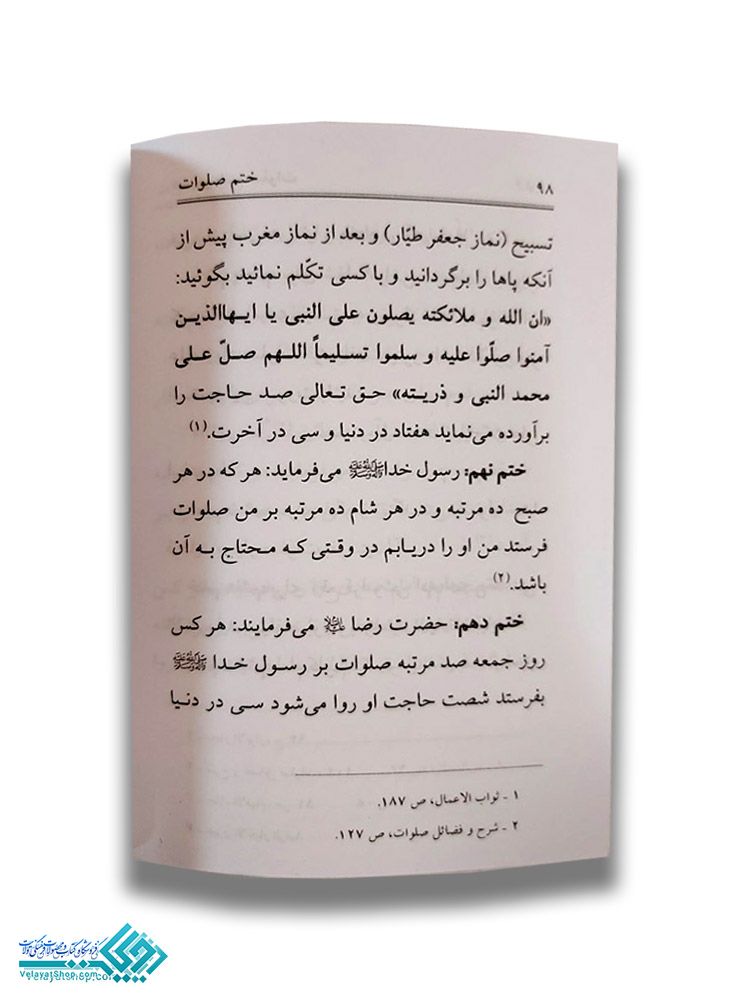 ۹۸
ختم صلوات
تسبیح (نماز جعفر طیّار) و بعد از نماز مغرب پیش از
آنکه پاها را برگردانید و با کسی تکلّم نمائید بگوئید:
«ان الله و ملائکته یصلون علی النبی یا ایهاالذین
آمنوا صلّوا علیه و سلموا تسلیماً اللهم صلّ علی
محمد النبی و ذریته» حق تعالی صد حاجت را
برآورده می‌نماید هفتاد در دنیا و سی در آخرت.(۱)
ختم نهم: رسول خداﷺ می‌فرماید: هر که در هر
صبح ده مرتبه و در هر شام ده مرتبه بر من صلوات
فرستد من او را دریابم در وقتی که محتاج به آن
باشد.(۲)
ختم دهم: حضرت رضا علیه‌السلام می‌فرمایند: هر کس
روز جمعه صد مرتبه صلوات بر رسول خدا ﷺ
بفرستد شصت حاجت او روا می‌شود سی در دنیا
۱ - ثواب الاعمال، ص ۱۸۷.
۲ - شرح و فضائل صلوات، ص ۱۲۷.
VelayatShop.com